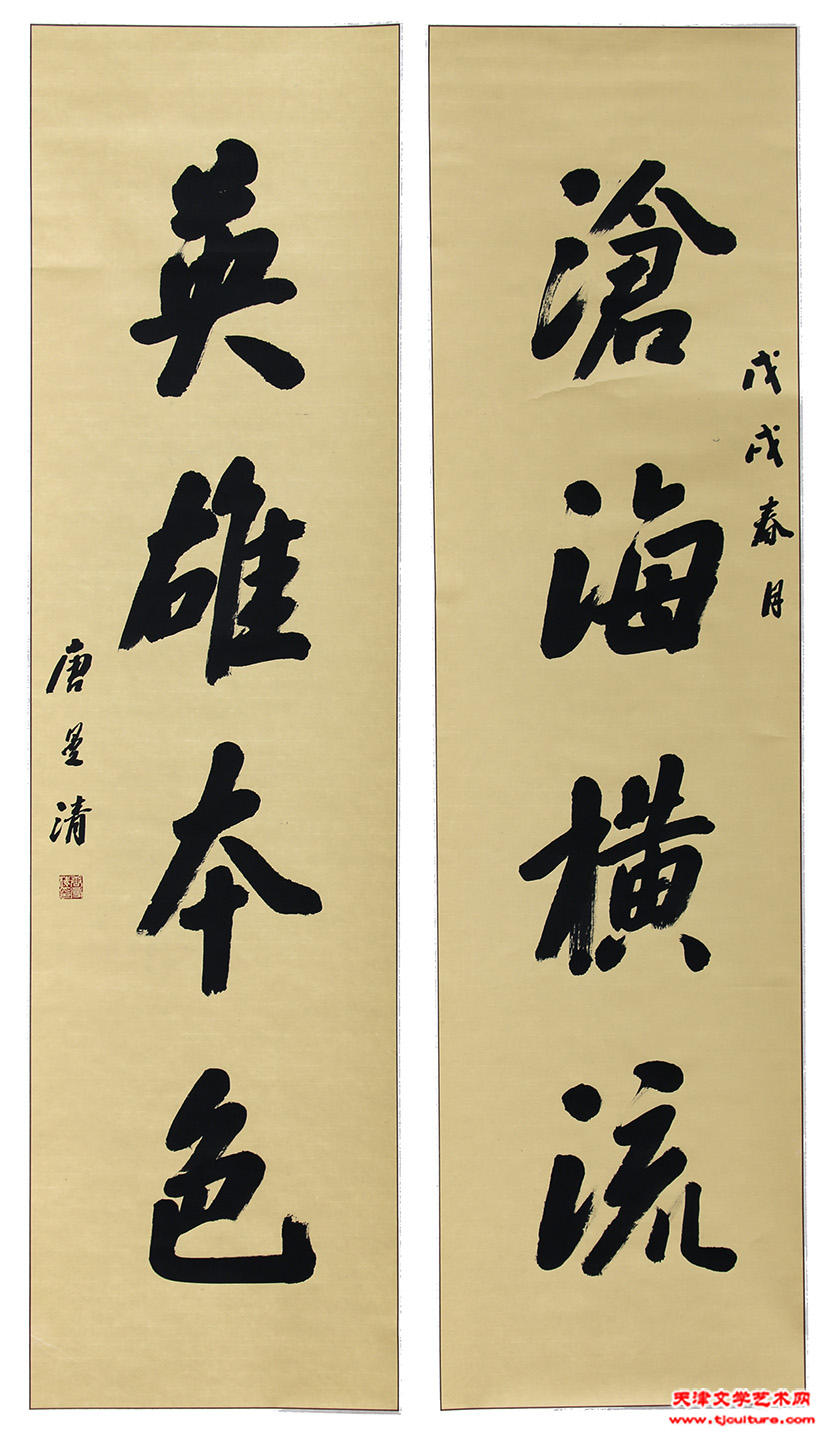 戊戌春月
滄海橫流
英雄本色
唐星清
天津文学艺术网
www.tjculture.com